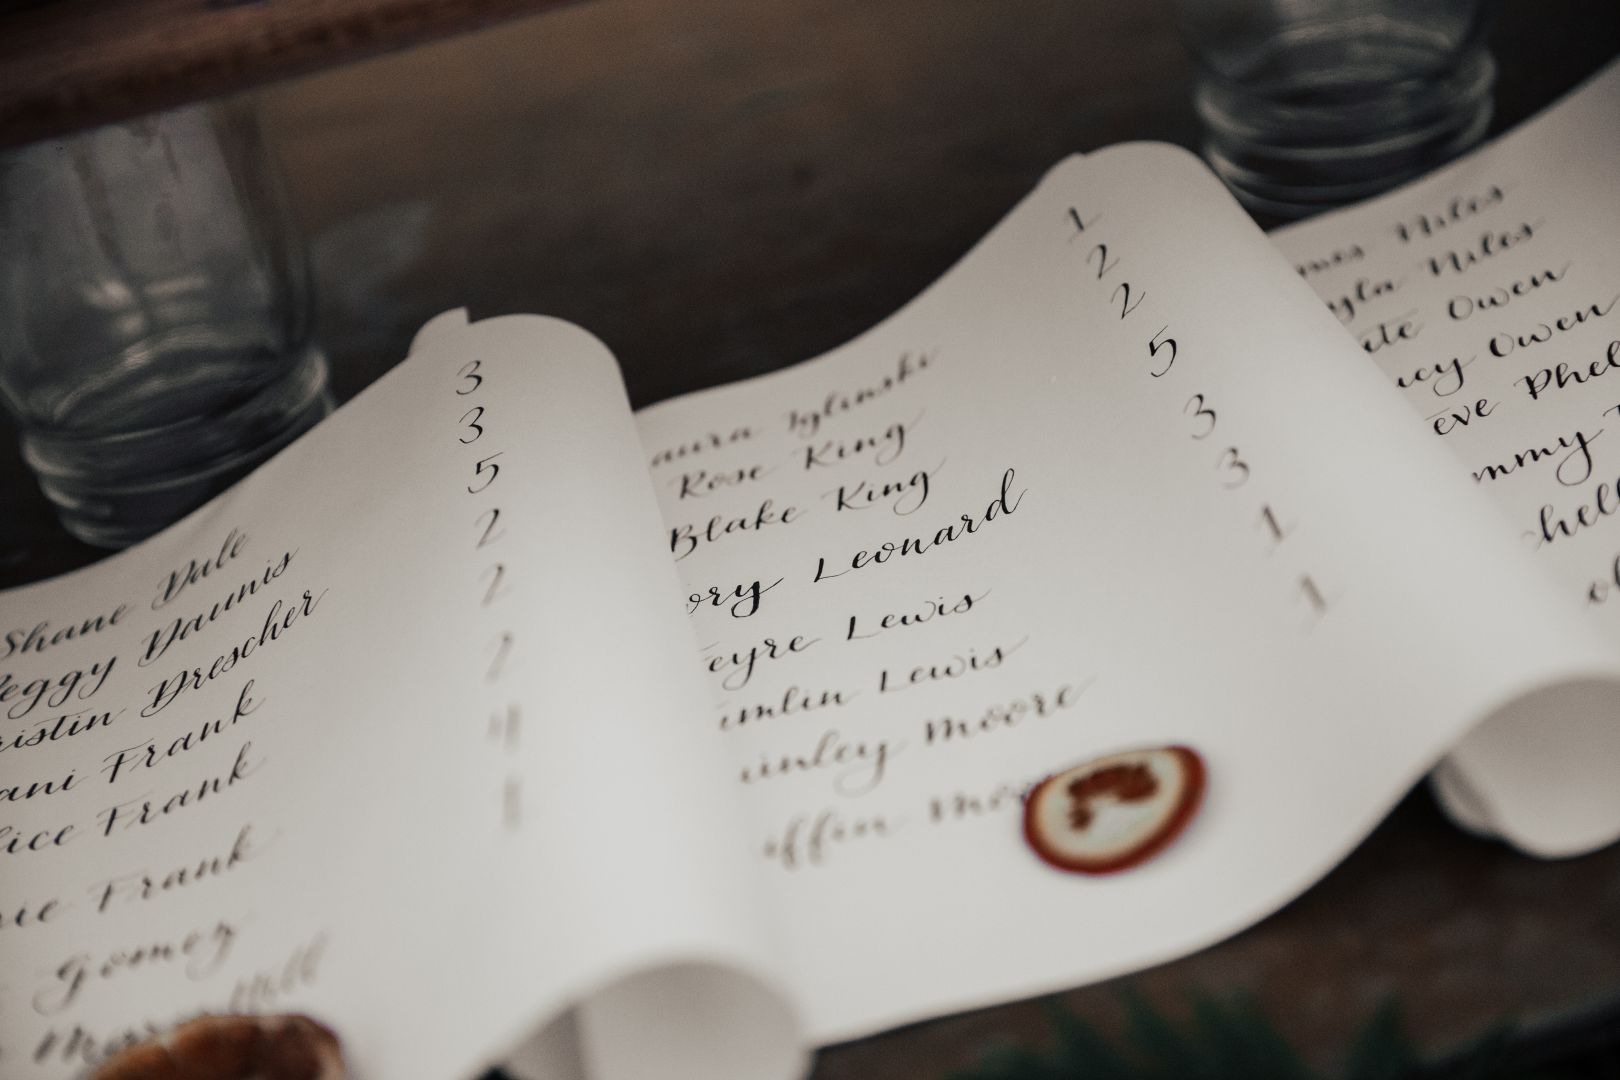 Shane Dale 3
Peggy Daunis 3
ristin Drescher 5
ani Frank 2
lice Frank 2
rie Frank 2
Gomez 4
1
aura Iglinski 1
Rose King 2
Blake King 2
ory Leonard 5
eyre Lewis 3
imlin Lewis 3
inley Moore 1
iffin 1
mes Niles
yla Niles
ate Owen
ucy Owen
eve Phel
mmy
chell